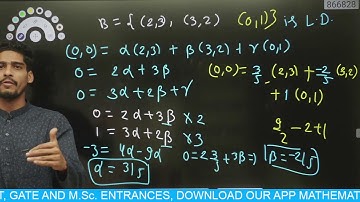 866828
B = { (2,3), (3,2) (0,1)} is L.D.
(0,0) = α(2,3) + β(3,2) + γ(0,1)
0 = 2α + 3β
0 = 3α + 2β + γ
(0,0) = 3/5 (2,3) + -2/5 (3,2)
+ 1 (0,1)
0 = 2α + 3β × 2
1 = 3α + 2β × 3
-3 = 4α - 9α
α = 3/5
β = -2/5
T, GATE AND M.Sc. ENTRANCES, DOWNLOAD OUR APP MATHEMAT